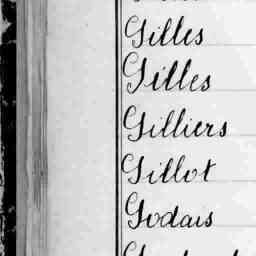 Gilles
Gilles
Gilliers
Gillot
Godais